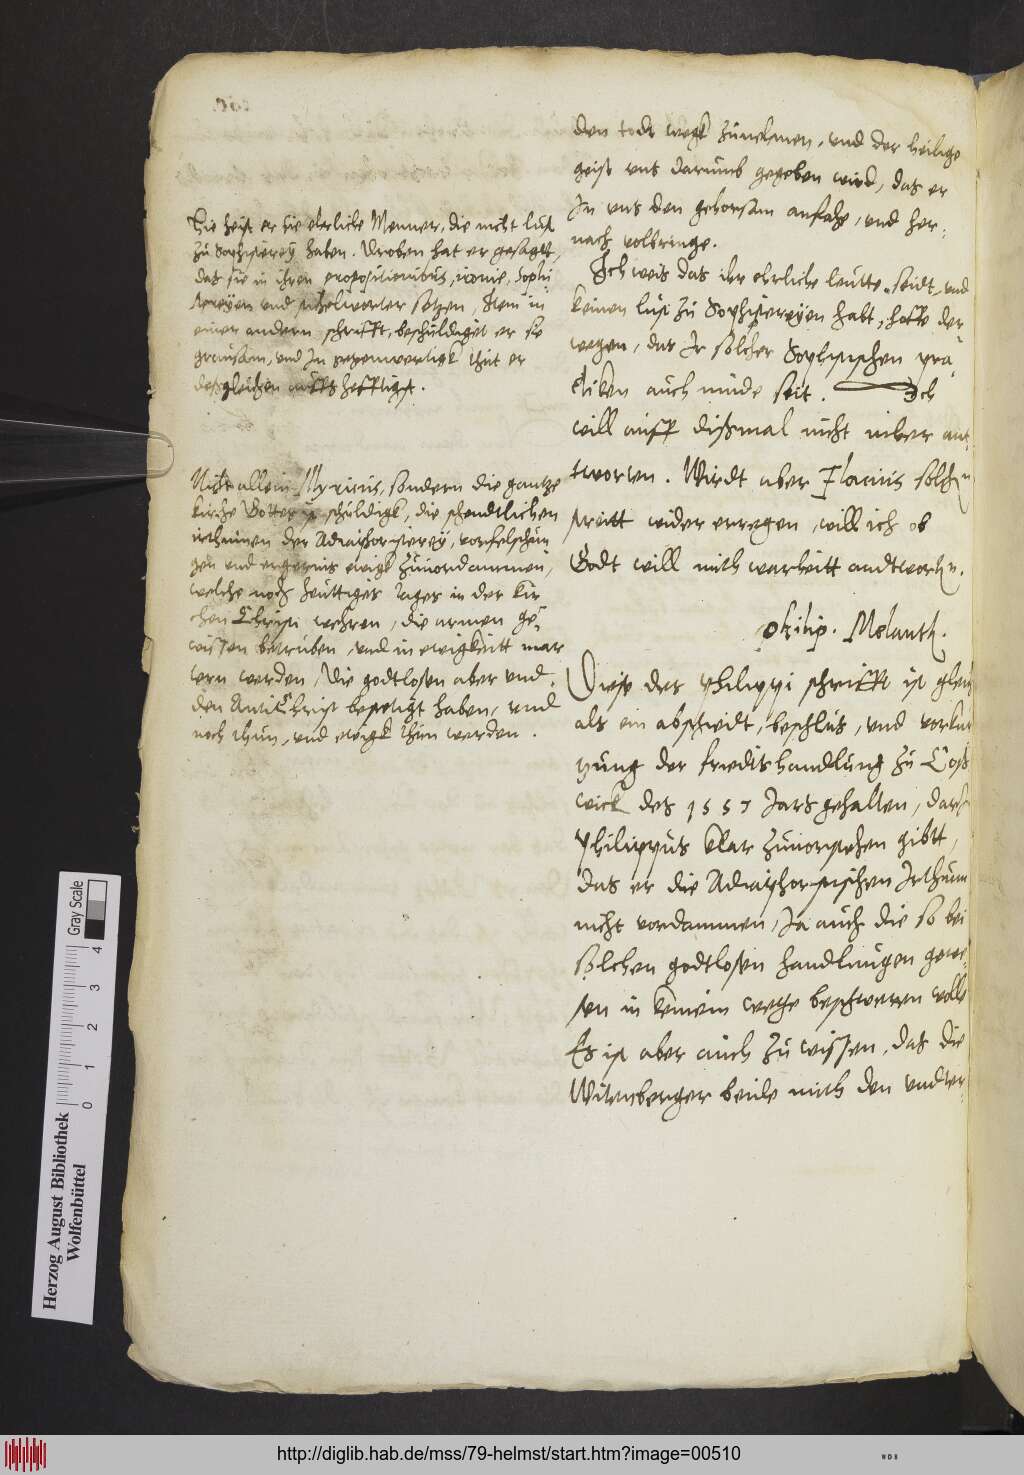 Hie heist er sie ehrliche Menner, die nicht lust
zu Sophisterey haben. Droben hat er gesagtt,
das sie in ihren propositionibus, ironie, Sophi
stereyen und schelworter setzen, Item in
einer andern schrifft, beschuldiget er sie
grausam, und In gegenwertigk thut er
desgleichen auffs hefftigst.
Nicht allein Illyricus, sondern die gantze
kirche Gottes ist schuldigk, die schendtlichen
irthumen der Adiaphoristerey, vorfelschun
gen und ergernis ewigk zuuordammen,
welche noch heuttiges tages in der kir
chen Christi wehren, die armen ge
wissen betruben, und in ewigkeitt mar
tern werden, Die godtlosen aber und
den AntiChrist bestetigt haben, und
noch thun, und ewigk thun werden.
den todt wegk zunehmen, und der heilige
geist uns darumb gegeben wird, das er
In uns den gehorsam anfahe, und her-
nach volbringe.
Ich weis das ihr ehrliche leutte seidt, und
keinen lust zu Sophistereyen habt, hoffe der
wegen, das Ir solcher Sophistischen pra-
ctiken auch müde seit. Ich
will auff dismal nicht mher ant
tworten. Wirdt aber Flacius solchen
streitt wider erregen, will ich ob
Godt will mith warheitt andtworten.
Philip. Melanth.
Diese des Philippi schrifft ist gleich
als ein abschidt, beschlus, und vorkur
tzung der friedtshandlung zu Coss
wick des 1557 Jars gehalten, darin
Philippus klar zuuorstehen gibtt,
das er die Adiaphoristischen Irthum
nicht vordammen, Ja auch die so bei
solchen godtlosen handlungen gewe-
sen in keinem wege beschweren wolle
Es ist aber auch zu wissen, das die
Witenberger beide mith den undter-
Herzog August Bibliothek
Wolfenbüttel
0 1 2 3 4
Gray Scale
http://diglib.hab.de/mss/79-helmst/start.htm?image=00510